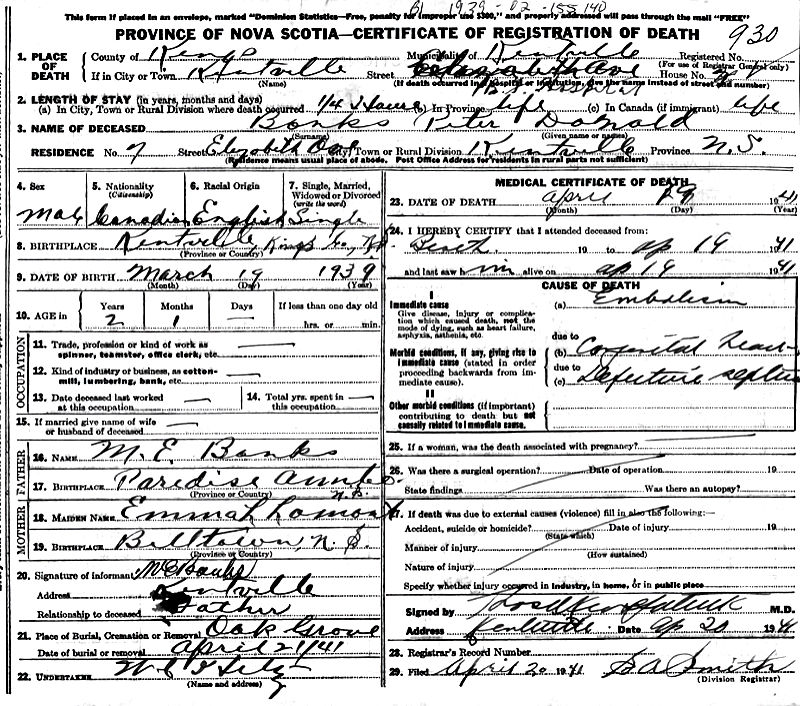 B) 1939-02-155140
This form if placed in an envelope, marked "Dominion Statistics—Free, penalty for improper use $300," and properly addressed will pass through the mail "FREE"
PROVINCE OF NOVA SCOTIA—CERTIFICATE OF REGISTRATION OF DEATH
930
1. PLACE OF DEATH County of Kings Municipality of Kentville Registered No.
(For use of Registrar General only)
If in City or Town Kentville (Name) Street House No.
(If death occurred in a Hospital or Institution, give the name instead of street and number)
2. LENGTH OF STAY (in years, months and days)
(a) In City, Town or Rural Division where death occurred 1/4 Hours (b) In Province life (c) In Canada (if immigrant) life
3. NAME OF DECEASED Banks Peter Donald
(Surname) (Given name or names)
RESIDENCE No. 7 Street Elizabeth Ave City, Town or Rural Division Kentville Province N.S.
(Residence means usual place of abode. Post Office Address for residents in rural parts not sufficient)
4. Sex Male
5. Nationality (Citizenship) Canadian
6. Racial Origin English
7. Single, Married, Widowed or Divorced (write the word) Single
8. BIRTHPLACE Kentville, Kings Co., N.S.
(Province or Country)
9. DATE OF BIRTH March 19 1939
(Month) (Day) (Year)
10. AGE in Years 2 Months 1 Days — If less than one day old hrs. or min.
OCCUPATION
11. Trade, profession or kind of work as spinner, teamster, office clerk, etc. —
12. Kind of industry or business, as cotton-mill, lumbering, bank, etc. —
13. Date deceased last worked at this occupation —
14. Total yrs. spent in this occupation —
15. If married give name of wife or husband of deceased —
FATHER
16. NAME M. E. Banks
17. BIRTHPLACE Paradise Annap. N.S.
(Province or Country)
MOTHER
18. MAIDEN NAME Emmah Lamont
19. BIRTHPLACE Billtown, N.S.
(Province or Country)
20. Signature of informant M E Banks
Address Kentville
Relationship to deceased Father
21. Place of Burial, Cremation or Removal Oak Grove
Date of burial or removal April 21/41
22. UNDERTAKER
(Name and address)
MEDICAL CERTIFICATE OF DEATH
23. DATE OF DEATH April 19 1941
(Month) (Day) (Year)
24. I HEREBY CERTIFY that I attended deceased from:
Birth 19 to ap 19 1941
and last saw him alive on ap 19 1941
CAUSE OF DEATH
I
Immediate cause
Give disease, injury or complication which caused death, not the mode of dying, such as heart failure, asphyxia, asthenia, etc.
(a) Embolism
due to
Morbid conditions, if any, giving rise to immediate cause (stated in order proceeding backwards from immediate cause).
(b) Congenital Heart
due to
(c) Defective septum
II
Other morbid conditions (if important) contributing to death but not causally related to immediate cause.
25. If a woman, was the death associated with pregnancy?
26. Was there a surgical operation? Date of operation 19
State findings Was there an autopsy?
27. If death was due to external causes (violence) fill in also the following:—
Accident, suicide or homicide? Date of injury 19
(State which)
Manner of injury
(How sustained)
Nature of injury
Specify whether injury occurred in industry, in home, or in public place
Signed by M.D.
Address Kentville Date ap 20 1941
28. Registrar's Record Number
29. Filed April 20 1941 S A Smith
(Division Registrar)